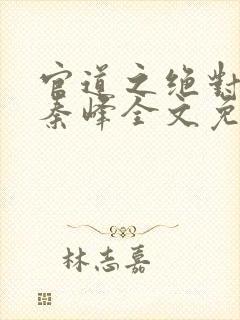 官道之绝对
秦峰全文免
林志嘉